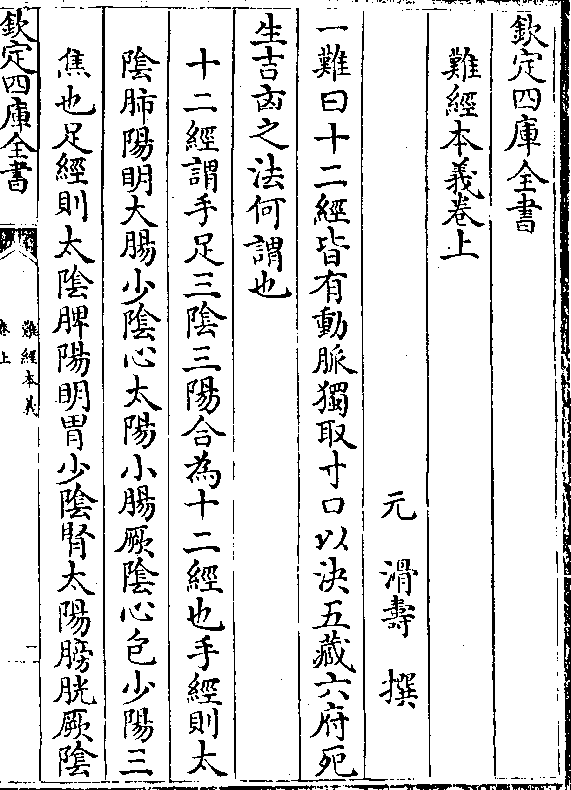 欽定四庫全書
難經本義卷上
元 滑壽 撰
一難曰十二經皆有動脈獨取寸口以決五藏六府死
生吉凶之法何謂也
十二經謂手足三陰三陽合為十二經也手經則太
陰肺陽明大腸少陰心太陽小腸厥陰心包少陽三
焦也足經則太陰脾陽明胃少陰腎太陽膀胱厥陰
欽定四庫全書
難經本義
卷上
一